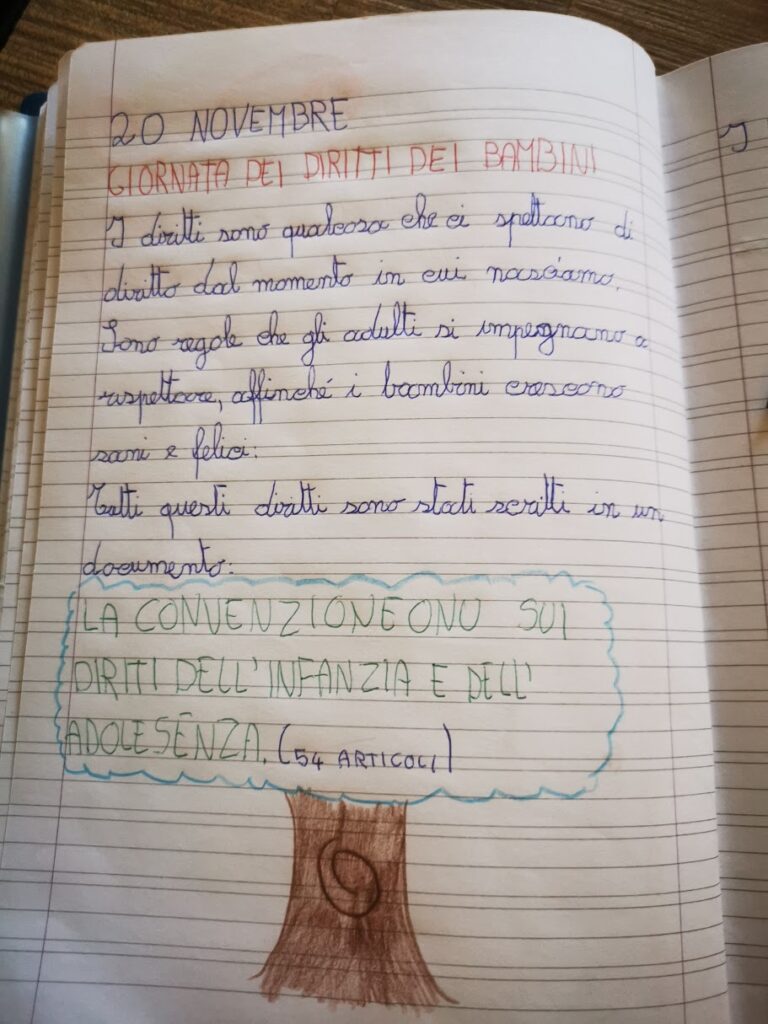 20 NOVEMBRE
GIORNATA DEI DIRITTI DEI BAMBINI
I diritti sono qualcosa che ci spettano di
diritto dal momento in cui nasciamo.
Sono regole che gli adulti si impegnano a
rispettare, affinché i bambini crescono
sani e felici.
Tutti questi diritti sono stati scritti in un
documento:
LA CONVENZIONE ONU SUI
DIRITI DELL'INFANZIA E DELL'
ADOLESENZA. (54 ARTICOLI)
I